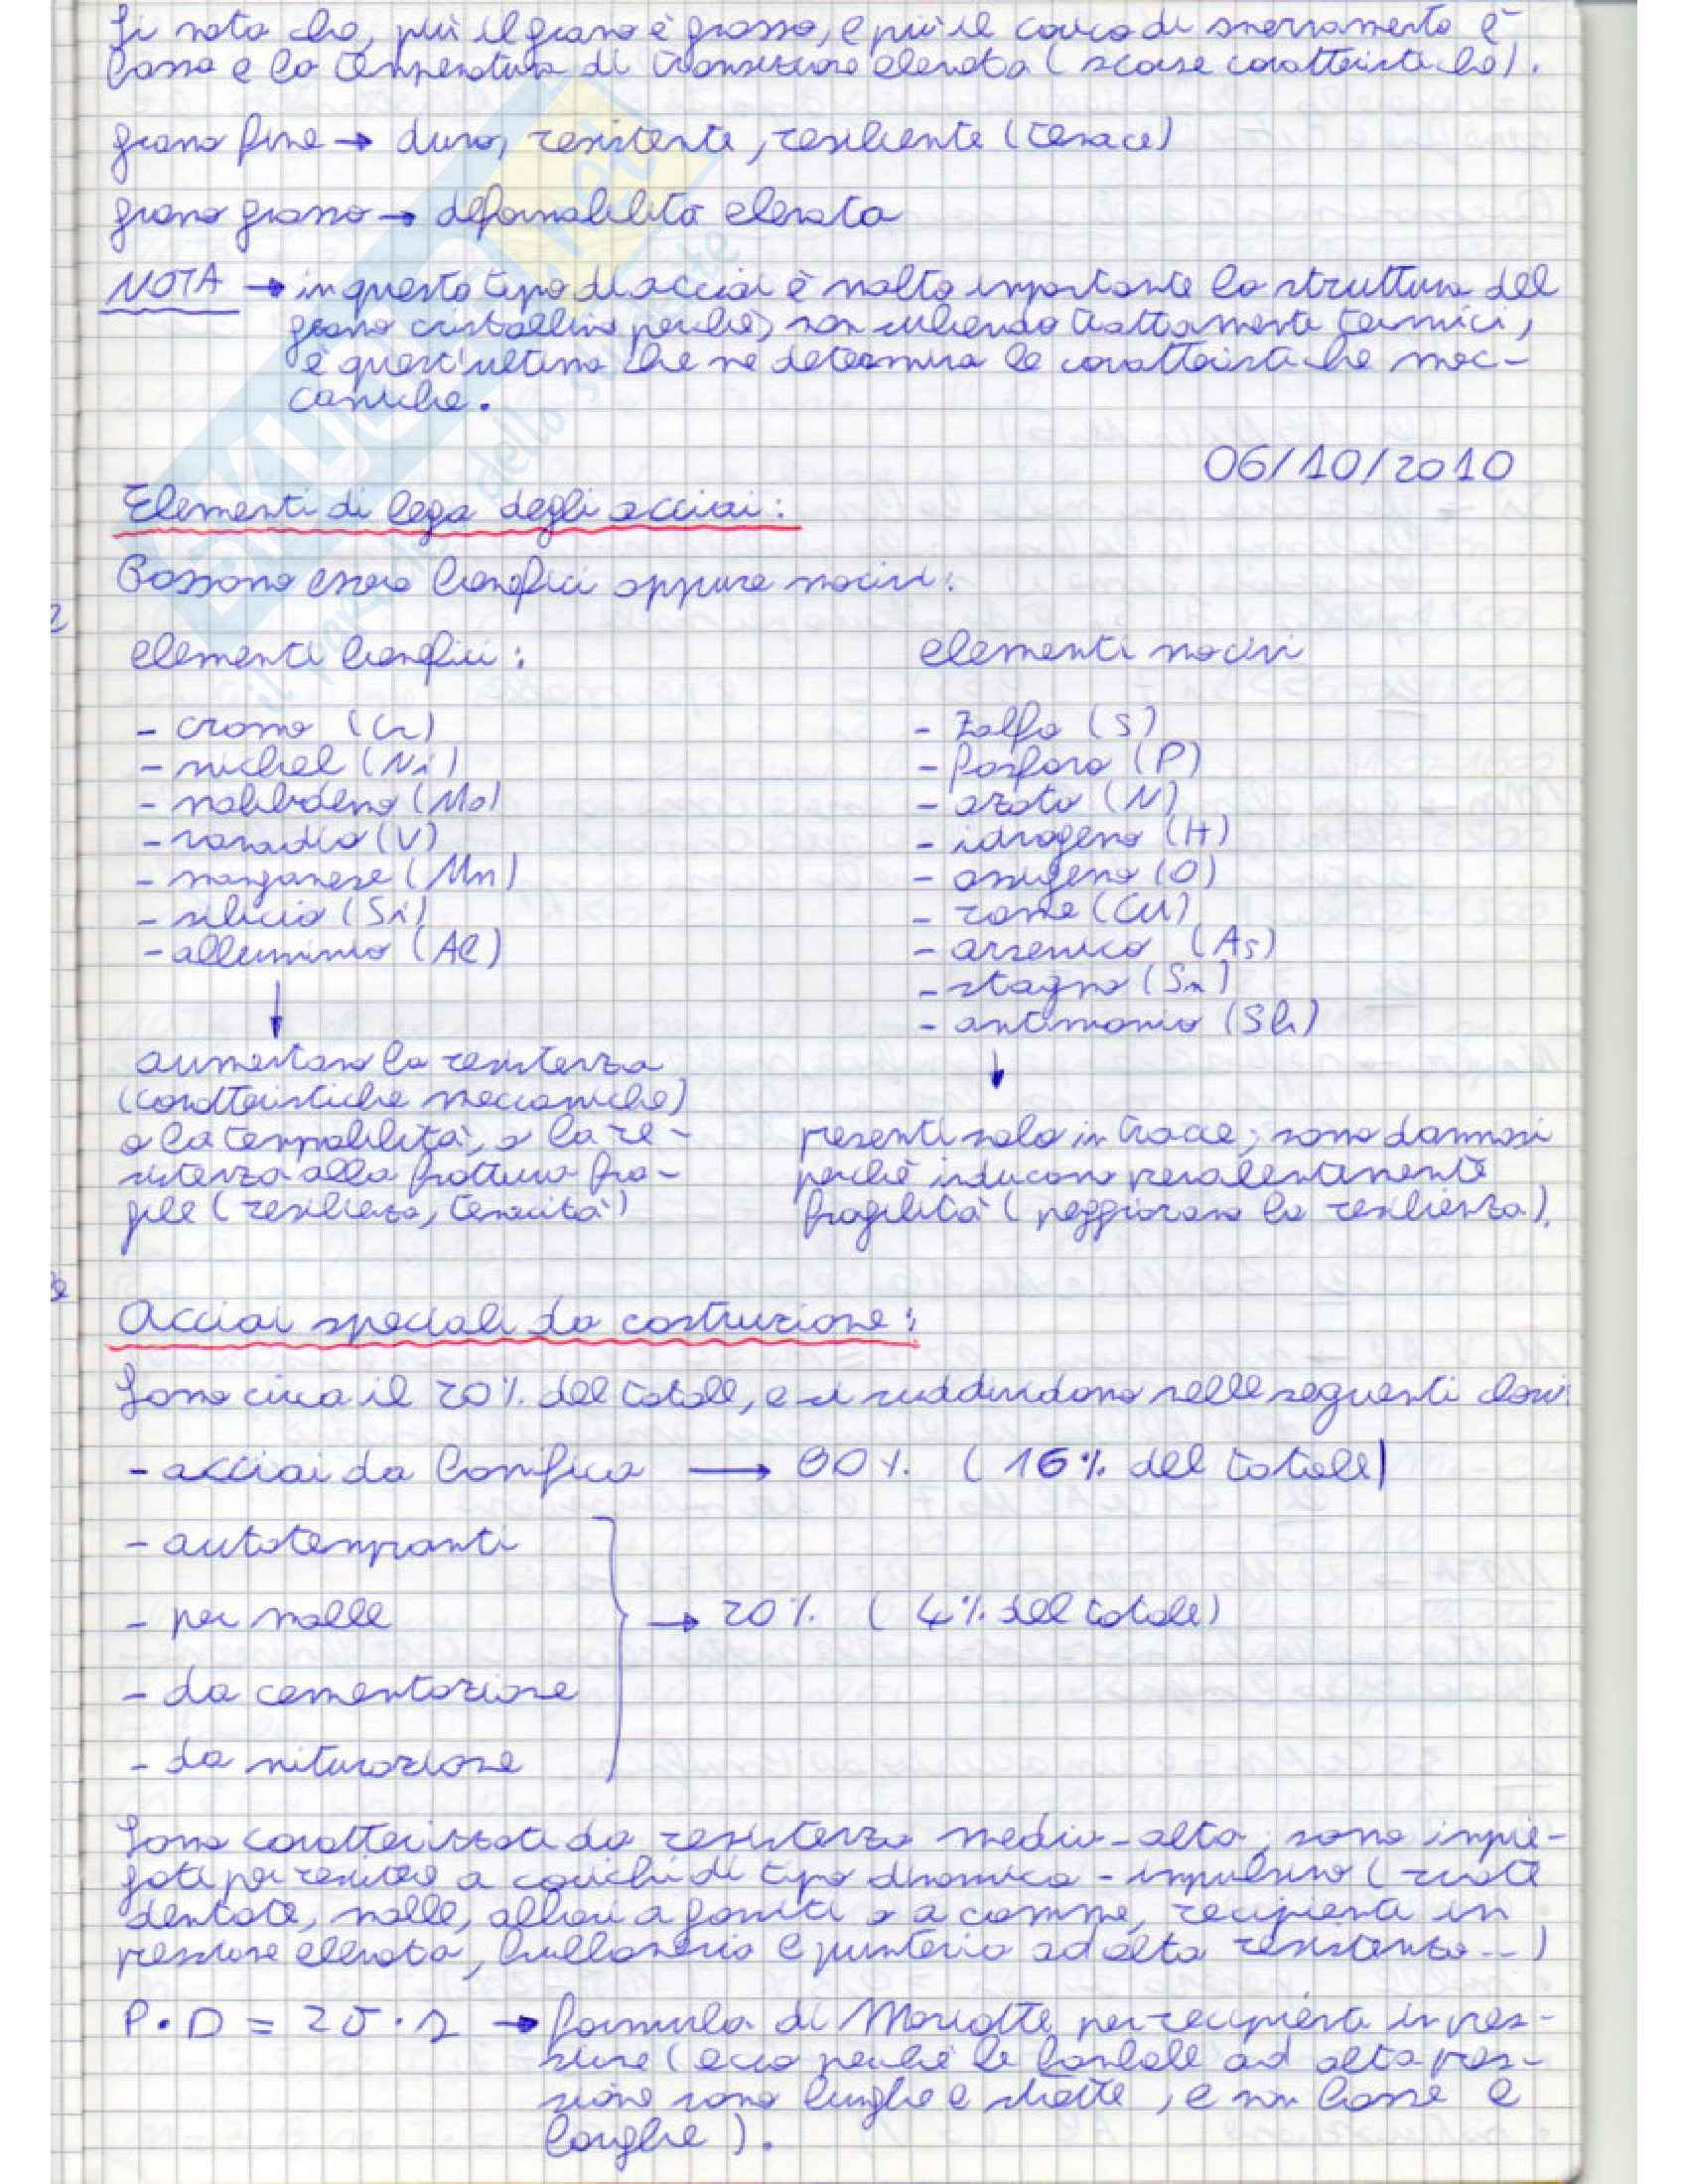 Si nota che, più il grano è grosso, e più il carico di snervamento è
basso e la temperatura di transizione elevata (scarse caratteristiche).
grano fine → duro, resistente, resiliente (tenace)
grano grosso → deformabilità elevata
NOTA → in questo tipo di acciai è molto importante la struttura del
grano cristallino perché, non subendo trattamenti termici,
è quest'ultimo che ne determina le caratteristiche mec-
caniche.
06/10/2010
Elementi di lega degli acciai:
Possono essere benefici oppure nocivi:
elementi benefici:
- cromo (Cr)
- nichel (Ni)
- molibdeno (Mo)
- vanadio (V)
- manganese (Mn)
- silicio (Si)
- alluminio (Al)
↓
aumentano la resistenza
(caratteristiche meccaniche)
o la temprabilità, o la re-
sistenza alla frattura fra-
gile (resilienza, tenacità)
elementi nocivi
- zolfo (S)
- fosforo (P)
- azoto (N)
- idrogeno (H)
- ossigeno (O)
- rame (Cu)
- arsenico (As)
- stagno (Sn)
- antimonio (Sb)
↓
presenti solo in tracce; sono dannosi
perché inducono prevalentemente
fragilità (peggiorano la resilienza).
Acciai speciali da costruzione:
Sono circa il 20% del totale, e si suddividono nelle seguenti classi
- acciai da bonifica → 80% (16% del totale)
- autotempranti
- per molle
→ 20% (4% del totale)
- da cementazione
- da nitrurazione
Sono caratterizzati da resistenza medio-alta; sono impie-
gati per resistere a carichi di tipo dinamico-impulsivo (ruote
dentate, molle, alberi a gomiti o a camme, recipienti in
pressione elevata, bulloneria e punteria ad alta resistenza...)
P·D = 2σ·s → formula di Mariotte per recipienti in pres-
sione (ecco perché le bombole ad alta pres-
sione sono lunghe e strette, e non basse e
larghe).
SKUOLA.net
il paradiso dello studente